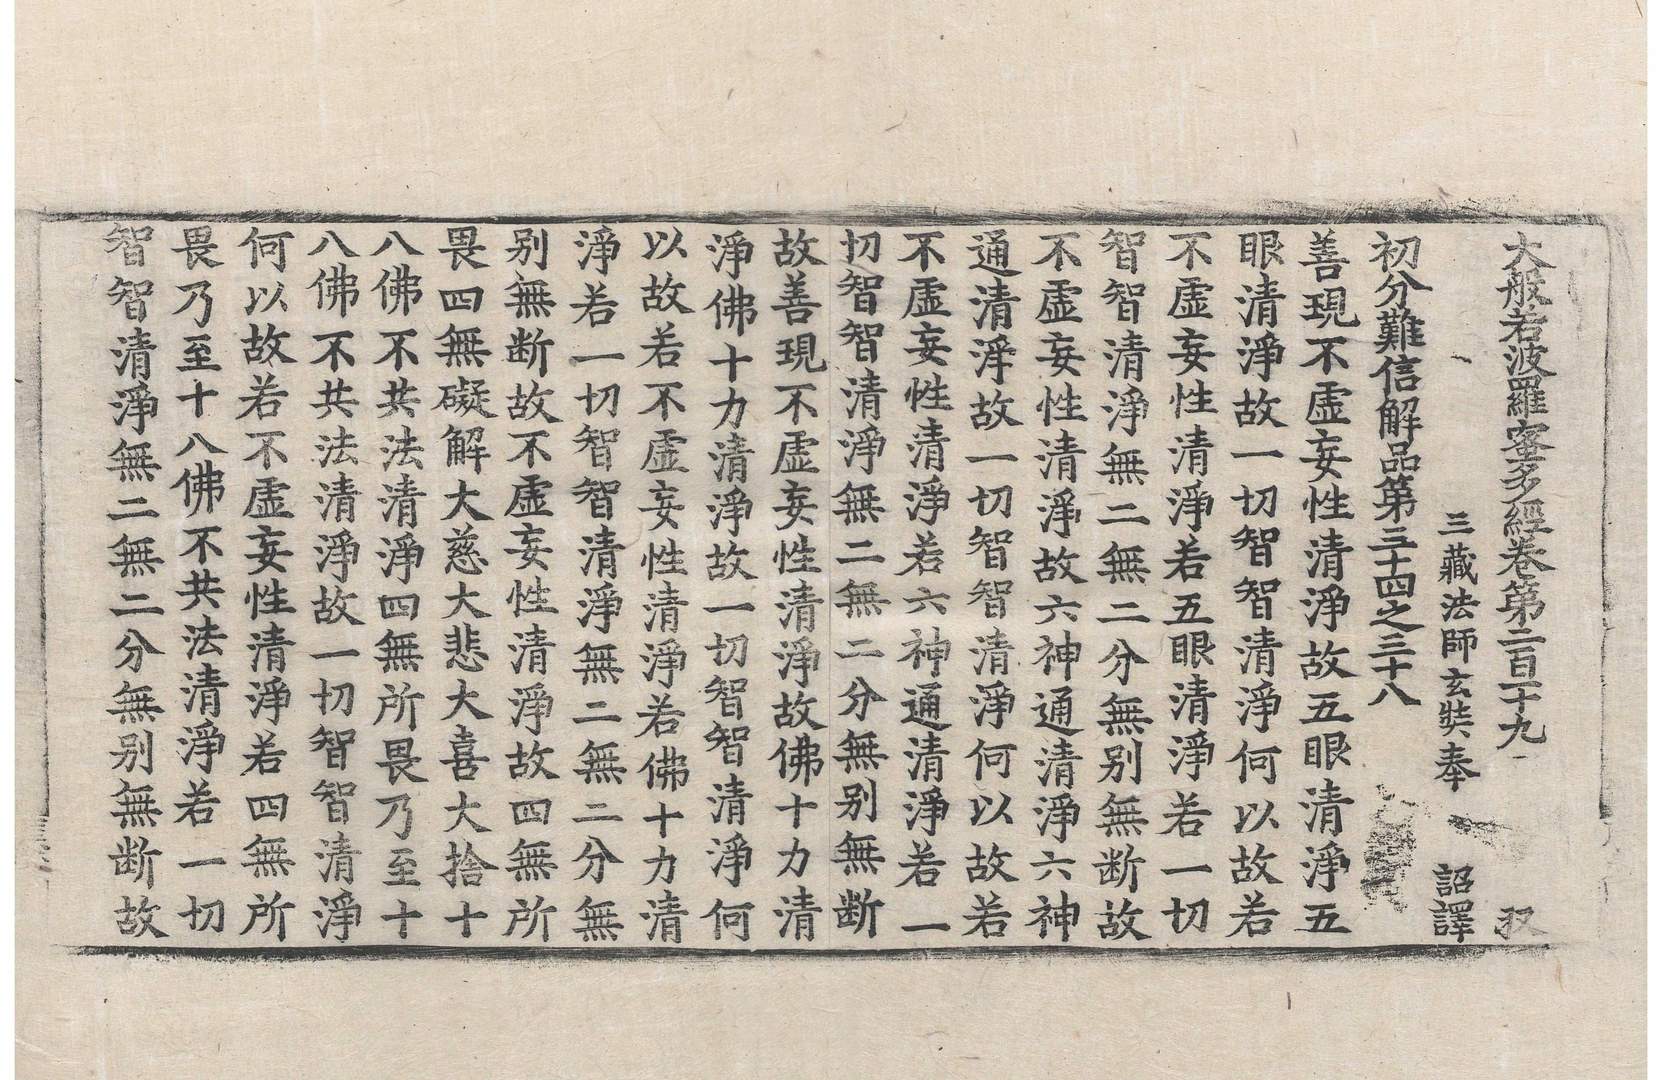 大般若波羅蜜多經卷第二百二十九
三藏法師玄奘奉 詔譯
初分難信解品第三十四之三十八
善現不虛妄性清淨故五眼清淨五
眼清淨故一切智智清淨何以故若
不虛妄性清淨若五眼清淨若一切
智智清淨無二無二分無別無斷故
不虛妄性清淨故六神通清淨六神
通清淨故一切智智清淨何以故若
不虛妄性清淨若六神通清淨若一
切智智清淨無二無二分無別無断
故善現不虛妄性清淨故佛十力清
淨佛十力清淨故一切智智清淨何
以故若不虛妄性清淨若佛十力清
淨若一切智智清淨無二無二分無
別無断故不虛妄性清淨故四無所
畏四無礙解大慈大悲大喜大捨十
八佛不共法清淨四無所畏乃至十
八佛不共法清淨故一切智智清淨
何以故若不虛妄性清淨若四無所
畏乃至十八佛不共法清淨若一切
智智清淨無二無二分無別無断故